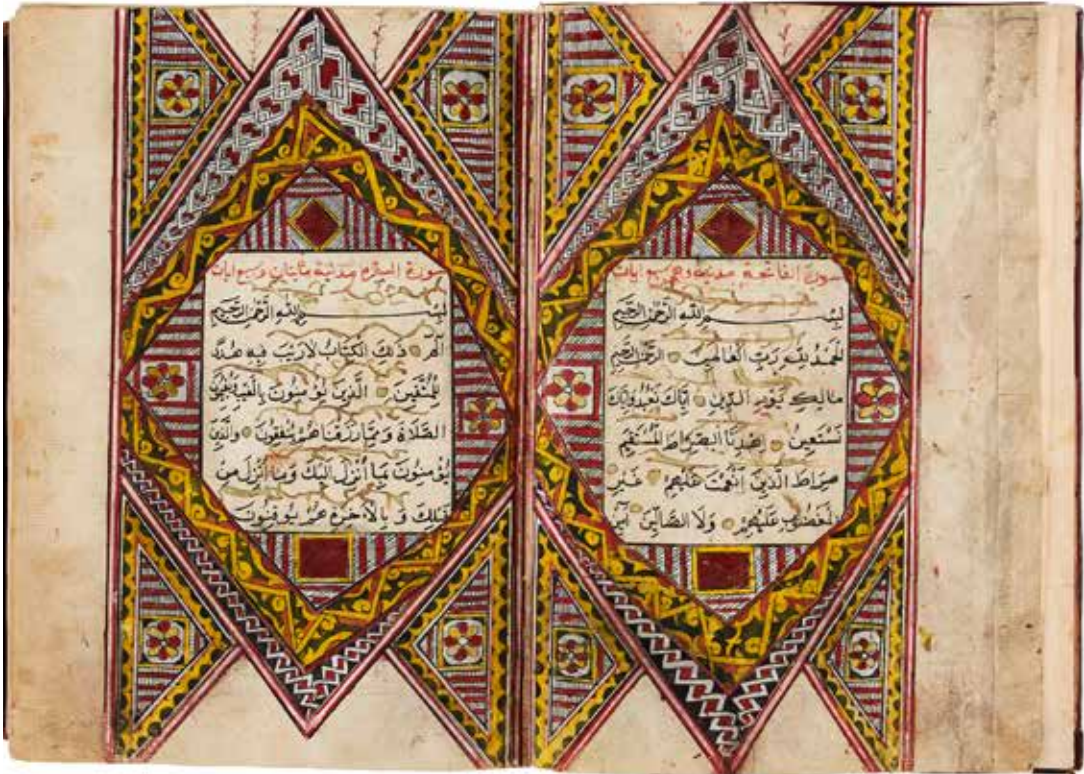 سورة الفاتحة مدينة وهي سبع ايات
بسم الله الرحمن الرحيم
الحمد لله رب العالمين الرحمن الرحيم
مالك يوم الدين اياك نعبد واياك
نستعين اهدنا الصراط المستقيم
صراط الذين انعمت عليهم غير
المغضوب عليهم ولا الضالين
سورة البقرة مدنية مايتان وسبع ايات
بسم الله الرحمن الرحيم
الم ذلك الكتاب لا ريب فيه هدى
للمتقين الذين يؤمنون بالغيب ويقيمون
الصلاة ومما رزقناهم ينفقون والذين
يؤمنون بما أنزل اليك وما أنزل من
قبلك وبالآخرة هم يوقنون